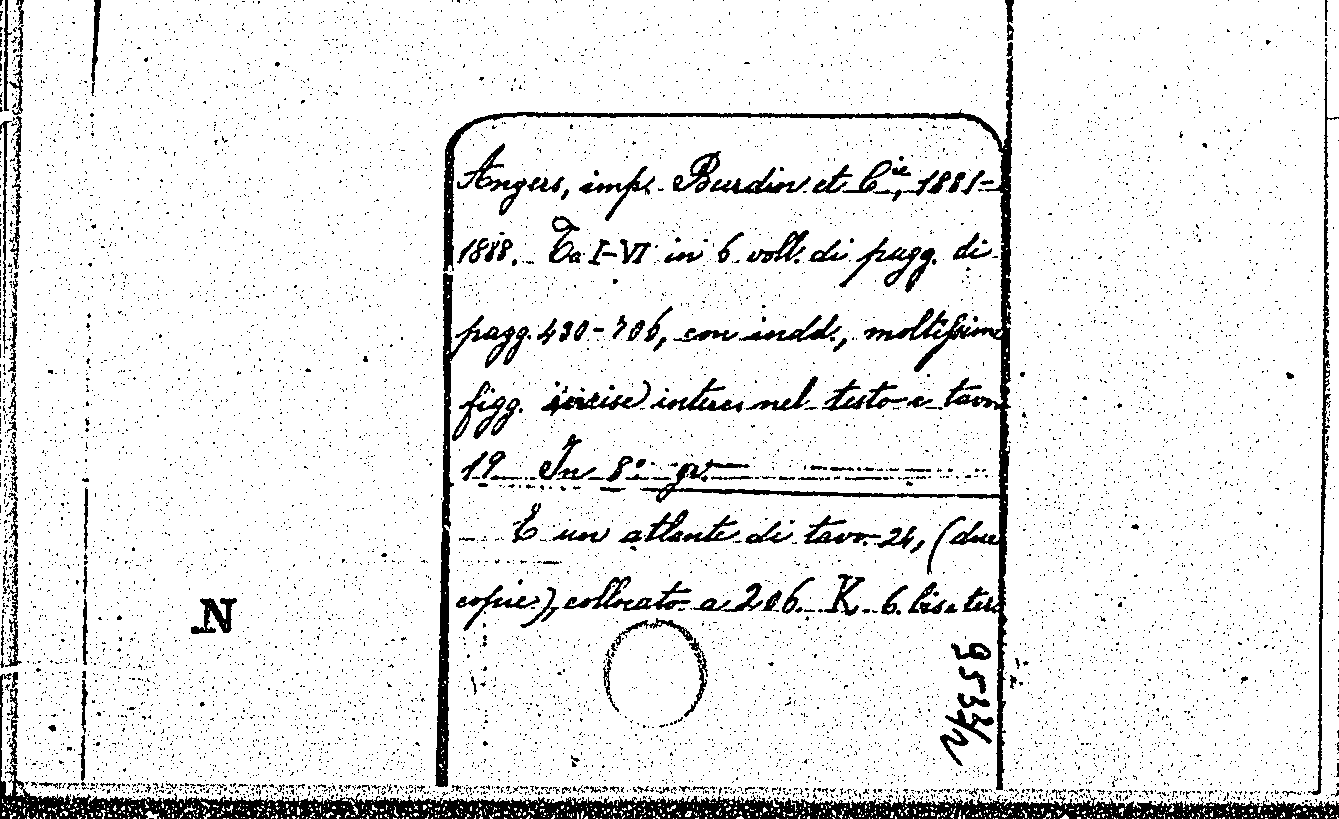 Angers, imp. Burdin et C.ie, 1881-
1888. Ta I-VI in 6 voll. di pagg. di
pagg. 430-706, con indd., moltissime
figg. incise) interc. nel testo e tavv.
19 In 8° gr.
E un atlante di tavv. 24, (due
copie), collocato a 206. K. 6. bis e ter
N